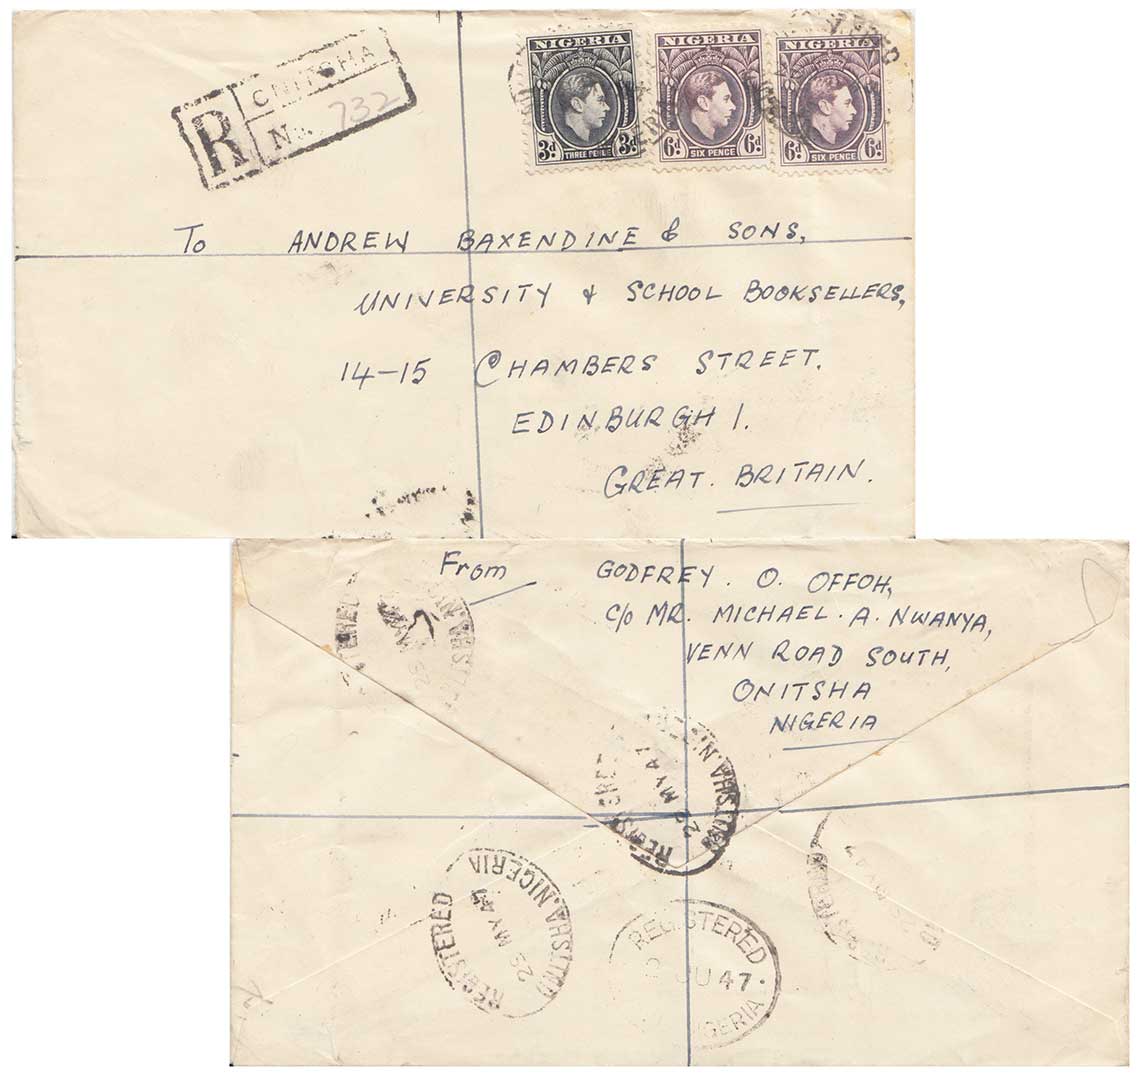 R
ONITSHA
No. 732
NIGERIA
3d THREE PENCE 3d
NIGERIA
6d SIX PENCE 6d
NIGERIA
6d SIX PENCE 6d
To ANDREW BAXENDINE & SONS,
UNIVERSITY & SCHOOL BOOKSELLERS,
14-15 CHAMBERS STREET.
EDINBURGH 1.
GREAT. BRITAIN.
From GODFREY. O. OFFOH,
c/o MR. MICHAEL. A. NWANYA,
VENN ROAD SOUTH,
ONITSHA
NIGERIA
REGISTERED
MY 47
ONITSHA. NIGERIA
REGISTERED
MY 47
ONITSHA. NIGERIA
REGISTERED
JU 47.
NIGERIA